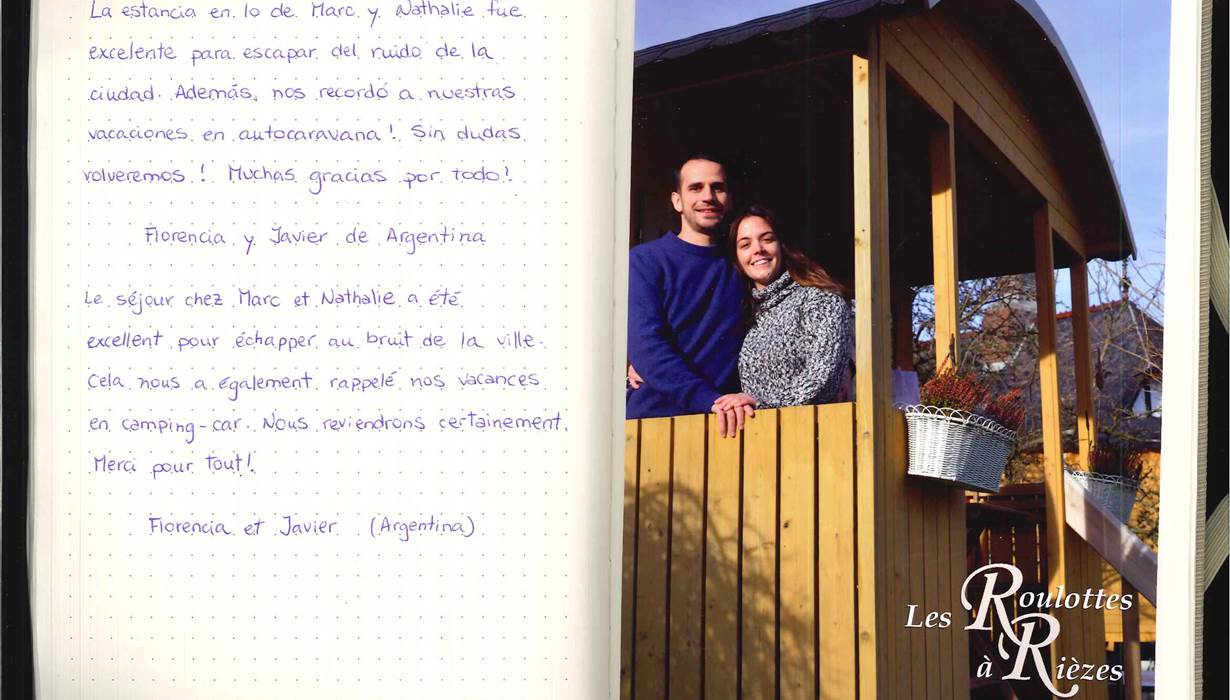 La estancia en lo de Marc y Nathalie fue
excelente para escapar del ruido de la
ciudad. Además, nos recordó a nuestras
vacaciones en autocaravana! Sin dudas
volveremos! Muchas gracias por todo!
Florencia y Javier de Argentina
Le séjour chez Marc et Nathalie a été
excellent pour échapper au bruit de la ville.
Cela nous a également rappelé nos vacances
en camping-car. Nous reviendrons certainement.
Merci pour tout!
Florencia et Javier (Argentina)
Les Roulottes
à Rièzes